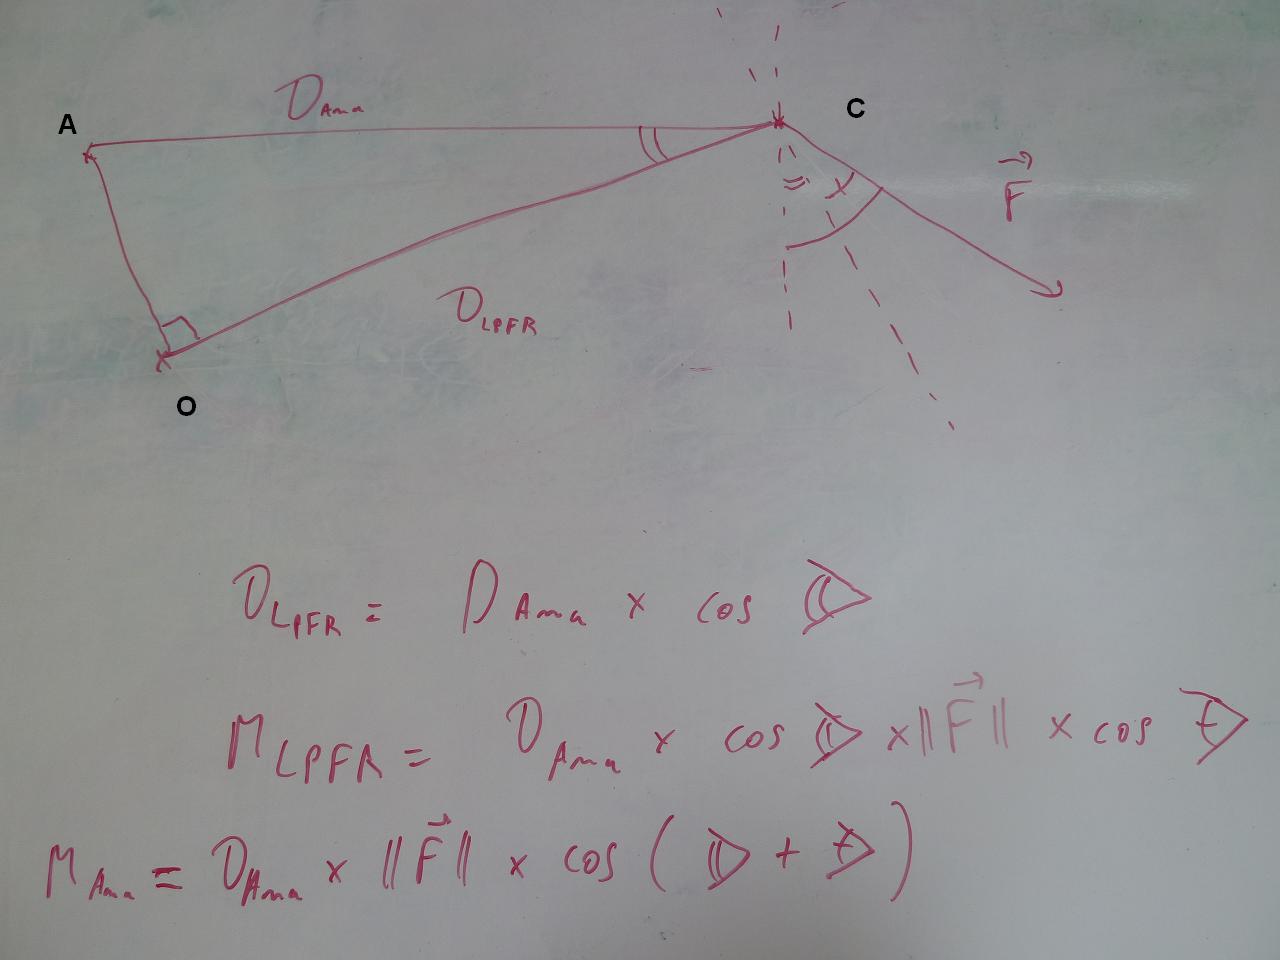 A
D Ama
C
F
D LPFR
O
D LPFR = D Ama x cos
M LPFR = D Ama x cos x ||F|| x cos
M Ama = D Ama x ||F|| x cos ( + )